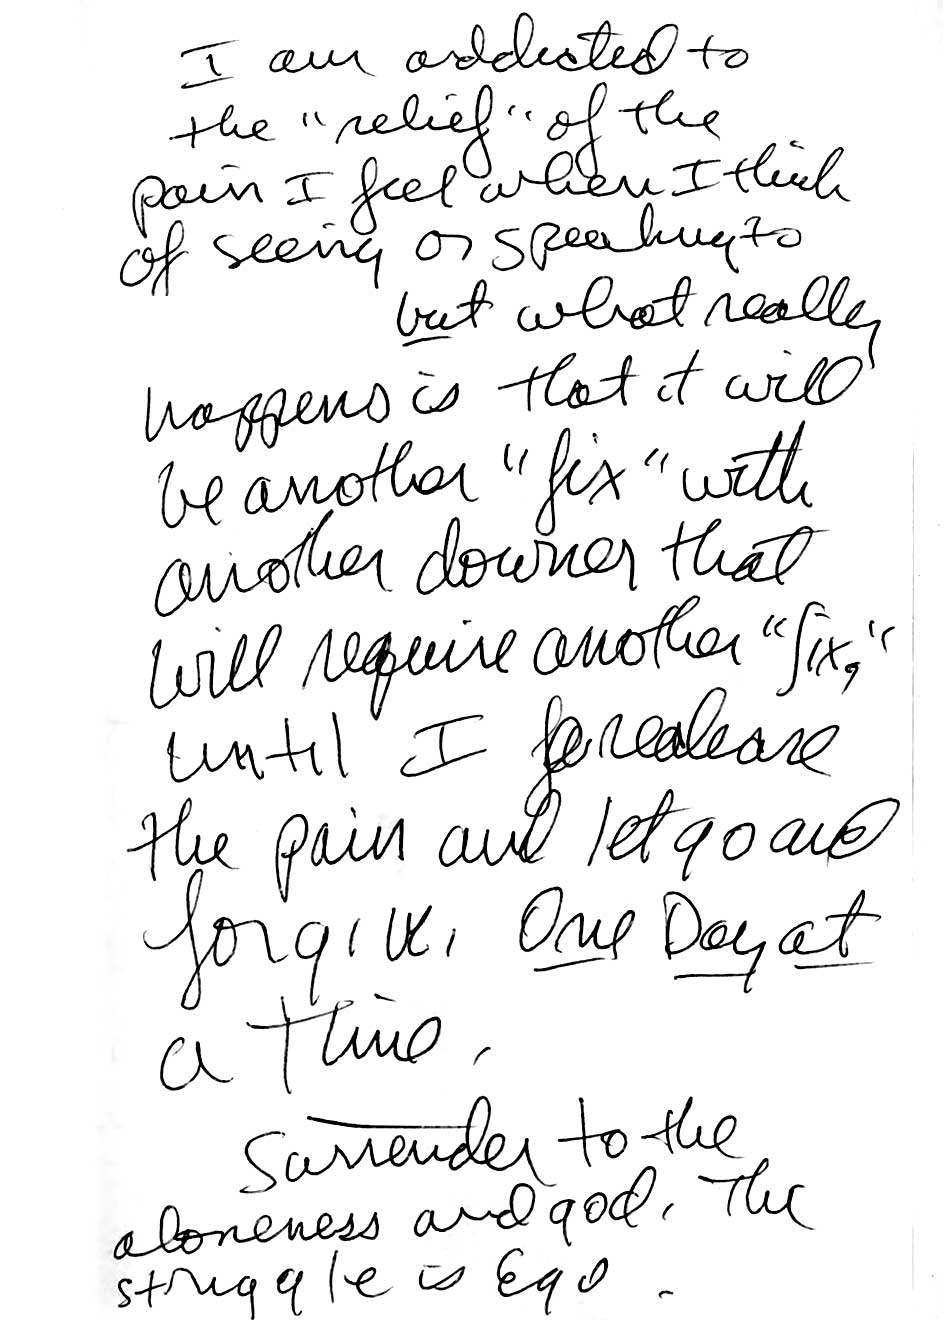 I am addicted to
the "relief" of the
pain I feel when I think
of seeing or speaking to
but what really
happens is that it will
be another "fix" with
another downer that
will require another "fix,"
until I release
the pain and let go and
forgive. One Day at
a Time.
Surrender to the
aloneness and god. The
struggle is Ego.